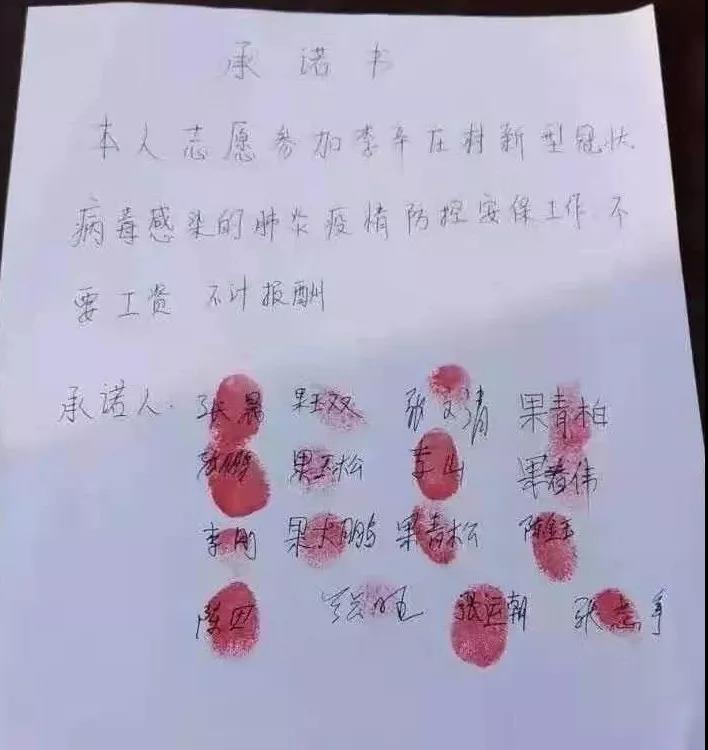 承诺书
本人志愿参加李辛庄村新型冠状
病毒感染的肺炎疫情防控安保工作 不
要工资 不计报酬
承诺人. 张晨 果玉双 张文清 果青柏
果玉松 李山 果春伟
李刚 果大鹏 果青松 陈金玉
陈四 张运朝 张志军